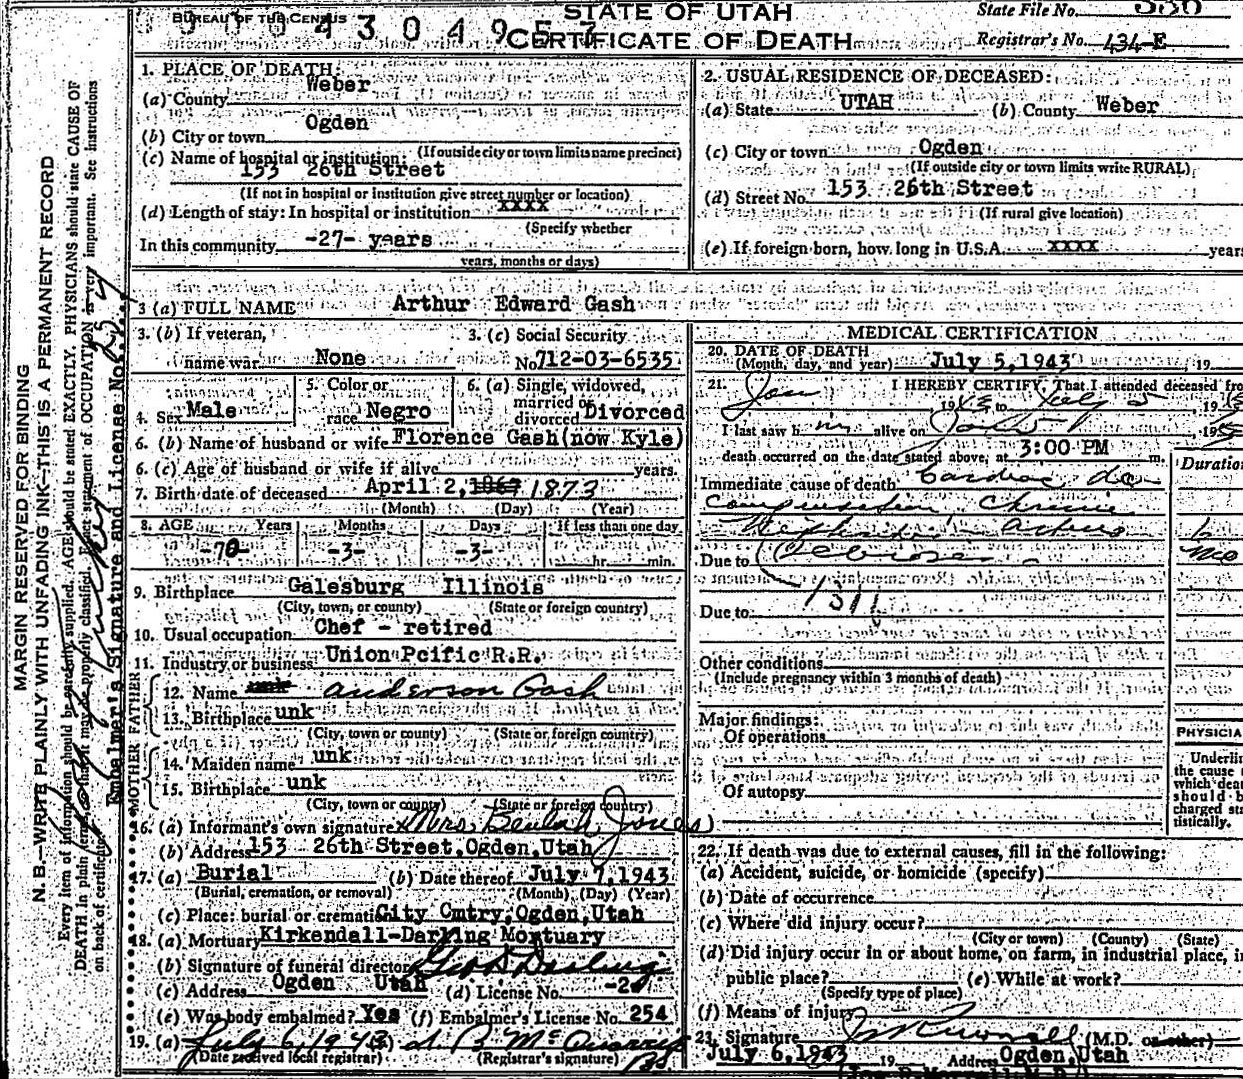 BUREAU OF THE CENSUS
STATE OF UTAH
CERTIFICATE OF DEATH
State File No.
Registrar's No. 434-E
MARGIN RESERVED FOR BINDING
N. B.—WRITE PLAINLY WITH UNFADING INK—THIS IS A PERMANENT RECORD
Every item of information should be carefully supplied. AGE should be stated EXACTLY. PHYSICIANS should state CAUSE OF
DEATH in plain terms, so that it may be properly classified. Exact statement of OCCUPATION is very important. See instructions
on back of certificate.
Embalmer's Signature and License No. 254
1. PLACE OF DEATH:
(a) County Weber
(b) City or town Ogden
(If outside city or town limits name precinct)
(c) Name of hospital or institution:
153 26th Street
(If not in hospital or institution give street number or location)
(d) Length of stay: In hospital or institution xxxx
(Specify whether
In this community -27- years
years, months or days)
2. USUAL RESIDENCE OF DECEASED:
(a) State UTAH (b) County Weber
(c) City or town Ogden
(If outside city or town limits write RURAL)
(d) Street No. 153 26th Street
(If rural give location)
(e) If foreign born, how long in U.S.A. xxxx years
3 (a) FULL NAME Arthur Edward Gash
3. (b) If veteran,
name war None
3. (c) Social Security
No. 712-03-6535
4. Sex Male
5. Color or
race Negro
6. (a) Single, widowed,
married or
divorced Divorced
6. (b) Name of husband or wife Florence Gash(now Kyle)
6. (c) Age of husband or wife if alive years.
7. Birth date of deceased April 2, 1867 1873
(Month) (Day) (Year)
8. AGE Years Months Days If less than one day
-70- -3- -3- hr. min.
9. Birthplace Galesburg Illinois
(City, town, or county) (State or foreign country)
10. Usual occupation Chef - retired
11. Industry or business Union Pcific R.R.
FATHER
12. Name unk Anderson Gash
13. Birthplace unk
(City, town, or county) (State or foreign country)
MOTHER
14. Maiden name unk
15. Birthplace unk
(City, town or county) (State or foreign country)
16. (a) Informant's own signature Mrs. Beulah Jones
(b) Address 153 26th Street, Ogden, Utah
17. (a) Burial (b) Date thereof July 7, 1943
(Burial, cremation, or removal) (Month) (Day) (Year)
(c) Place: burial or cremation City Cmtry, Ogden, Utah
18. (a) Mortuary Kirkendall-Darling Mortuary
(b) Signature of funeral director Geo D Darling
(c) Address Ogden Utah (d) License No.
(e) Was body embalmed? Yes (f) Embalmer's License No. 254
19. (a) July 6, 1943
(Date received local registrar) (Registrar's signature)
MEDICAL CERTIFICATION
20. DATE OF DEATH
(Month, day, and year) July 5, 1943 19
21. I HEREBY CERTIFY, That I attended deceased fro
Jan 19 to July 5, 19
I last saw him alive on , 19
death occurred on the date stated above, at 3:00 PM m.
Duration
Immediate cause of death Cardiac de
compensation, Chronic
Nephritis, Arterio
Due to
131
Due to
Other conditions
(Include pregnancy within 3 months of death)
Major findings:
Of operations
Of autopsy
PHYSICIA
Underlin
the cause
which dea
should b
charged sta
tistically.
22. If death was due to external causes, fill in the following:
(a) Accident, suicide, or homicide (specify)
(b) Date of occurrence
(c) Where did injury occur?
(City or town) (County) (State)
(d) Did injury occur in or about home, on farm, in industrial place, in
public place? (e) While at work?
(Specify type of place)
(f) Means of injury
23. Signature (M.D. or other)
July 6, 1943 19 Address Ogden, Utah